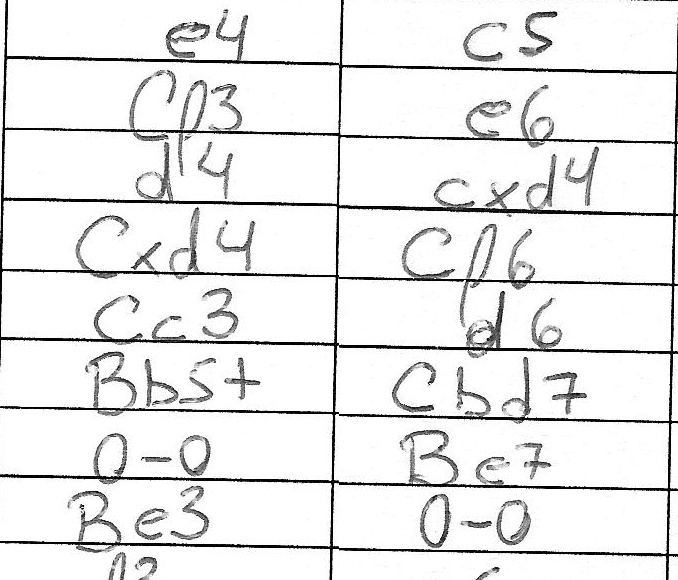 e4 c5
Cf3 e6
d4 cxd4
Cxd4 Cf6
Cc3 d6
Bb5+ Cbd7
0-0 Be7
Be3 0-0